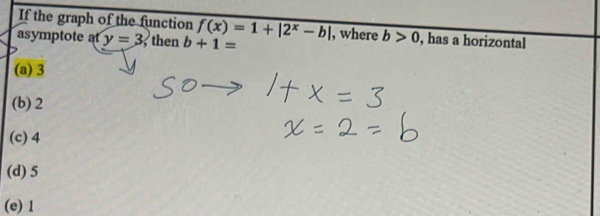 If the graph of the function f(x) = 1 + |2ˣ − b|, where b > 0, has a horizontal
asymptote at y = 3, then b + 1 =
(a) 3
so → 1 + x = 3
(b) 2
x = 2 = b
(c) 4
(d) 5
(e) 1